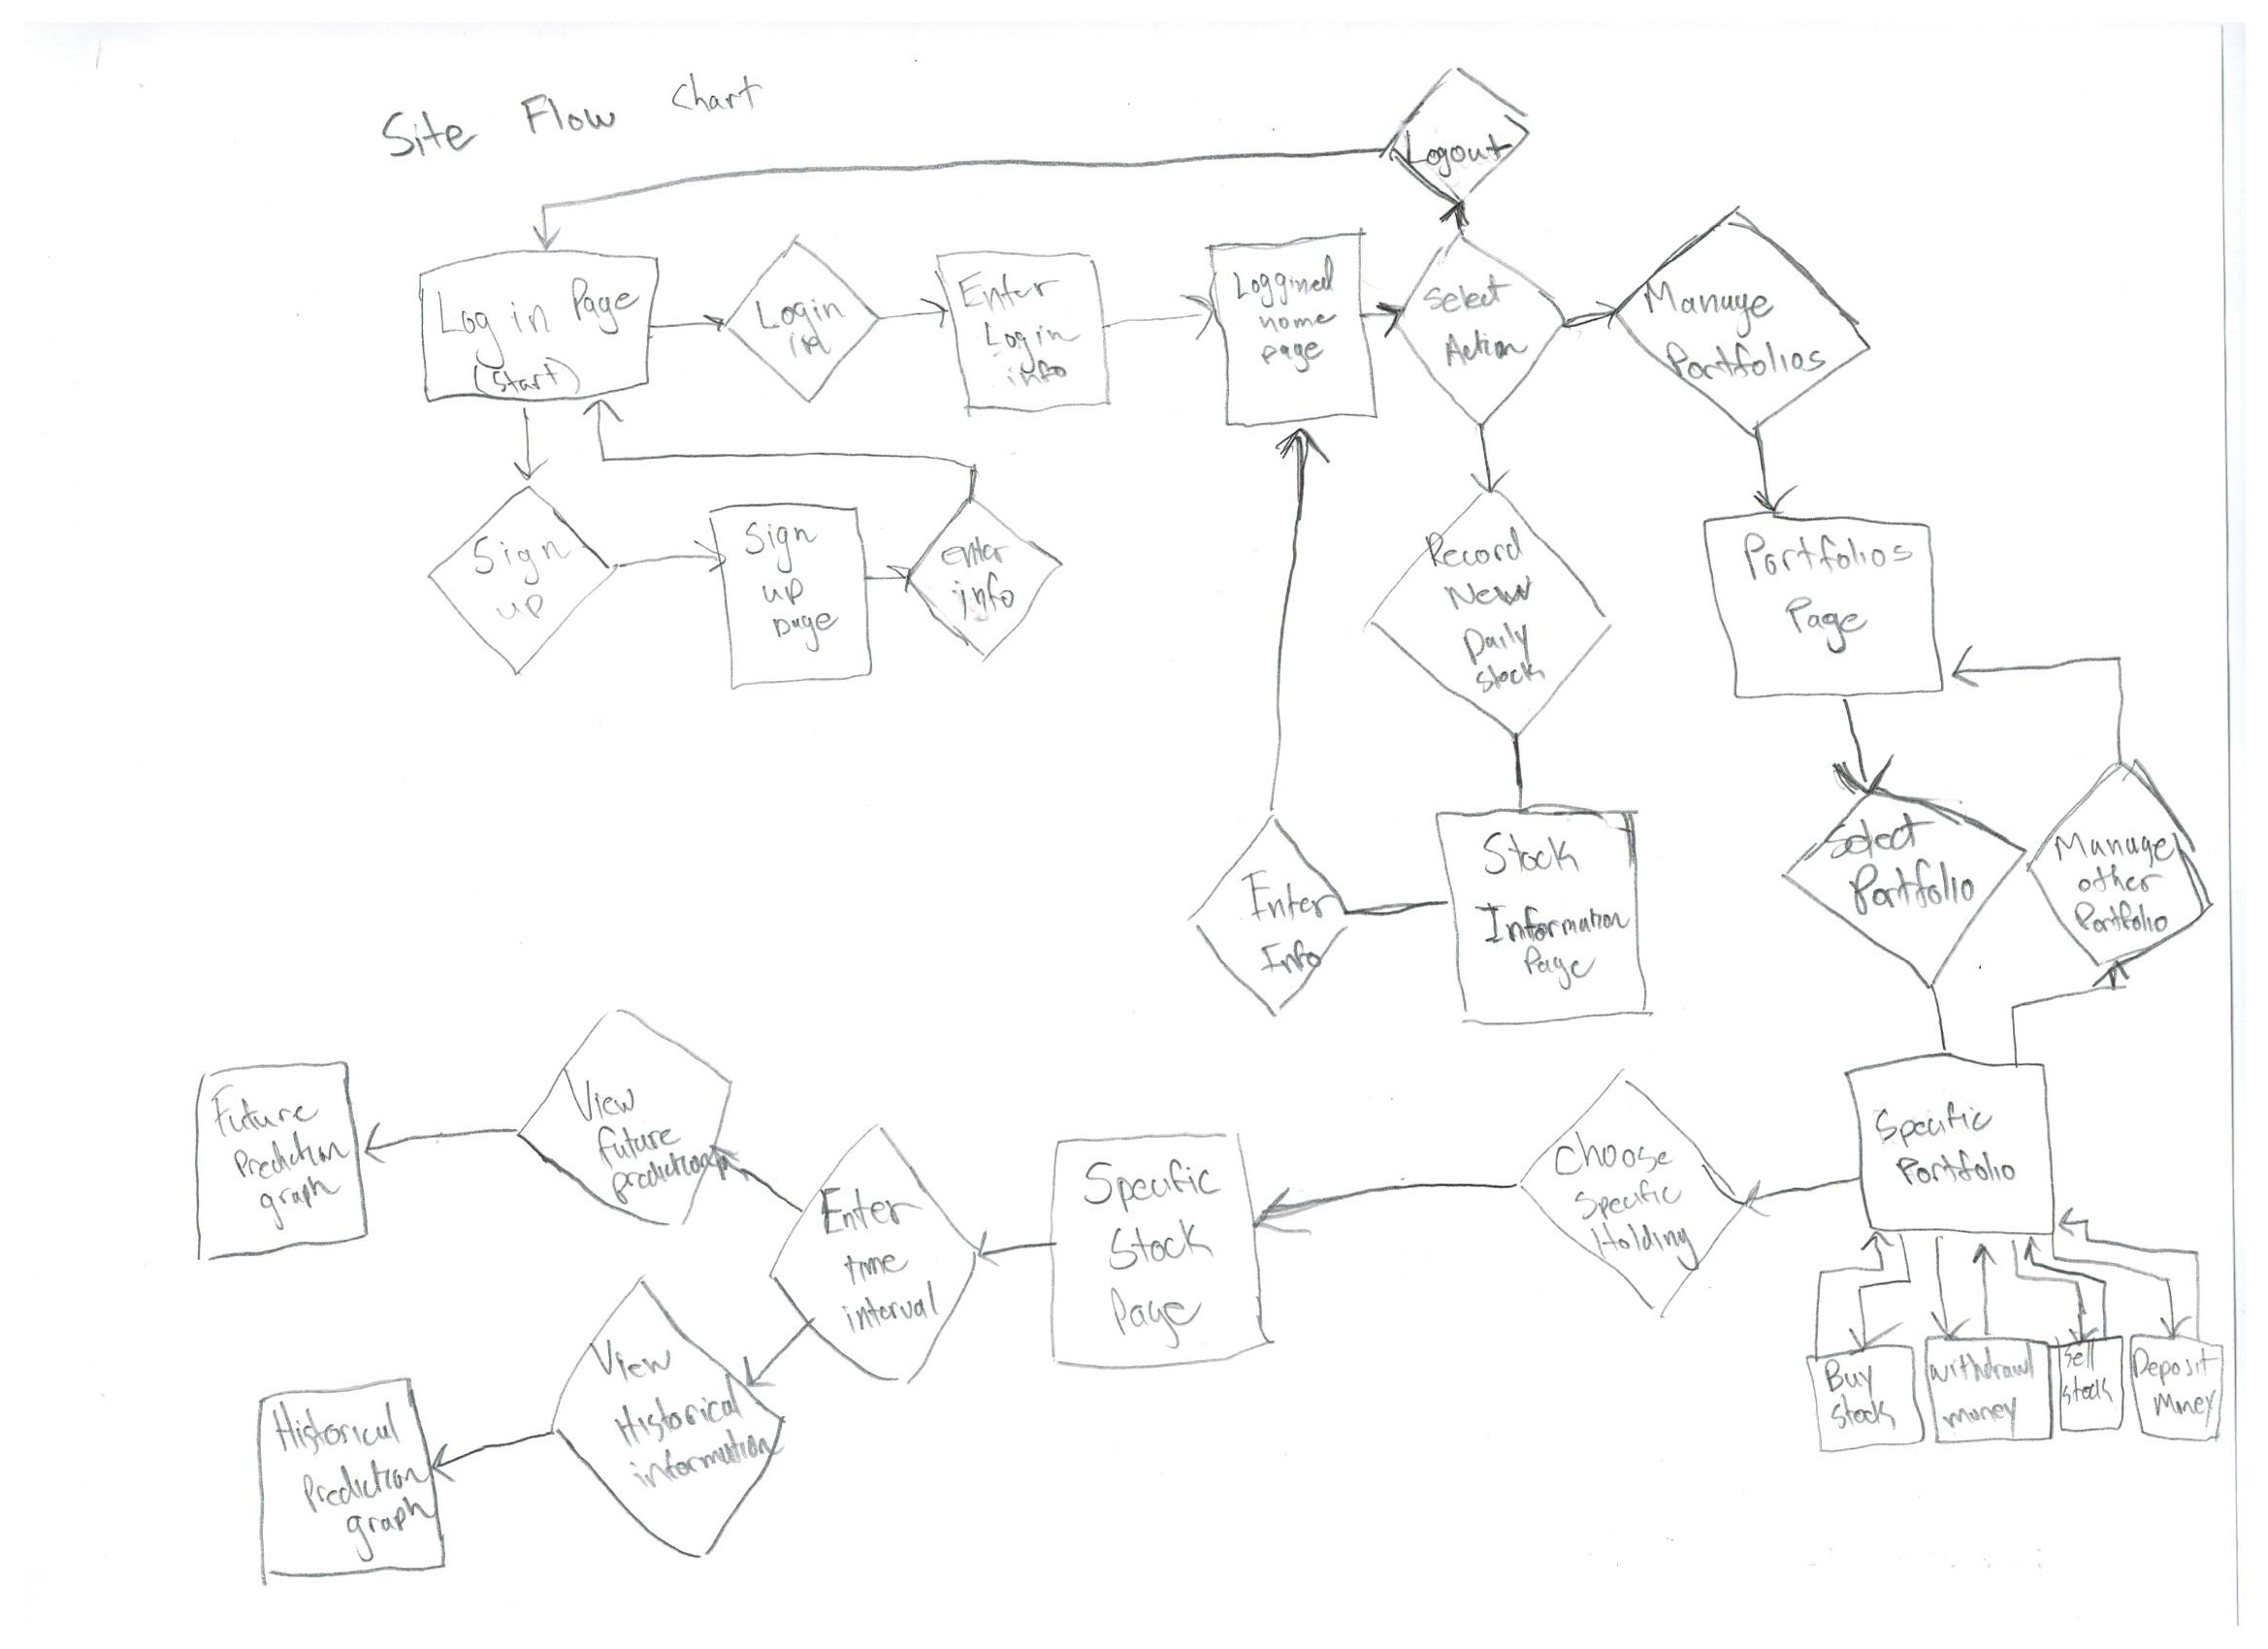 Site Flow Chart
Logout
Log in Page
(Start)
Login
Enter
Login
info
Loggined
home
page
Select
Action
Manage
Portfolios
Sign
up
Sign
up
page
enter
info
Record
New
Daily
Stock
Portfolios
Page
Enter
Info
Stock
Information
Page
Select
Portfolio
Manage
other
Portfolio
Future
Prediction
graph
View
future
prediction
Enter
time
interval
Specific
Stock
Page
Choose
Specific
Holding
Specific
Portfolio
Historical
Prediction
graph
View
Historical
information
Buy
Stock
withdrawl
money
Sell
Stock
Deposit
Money